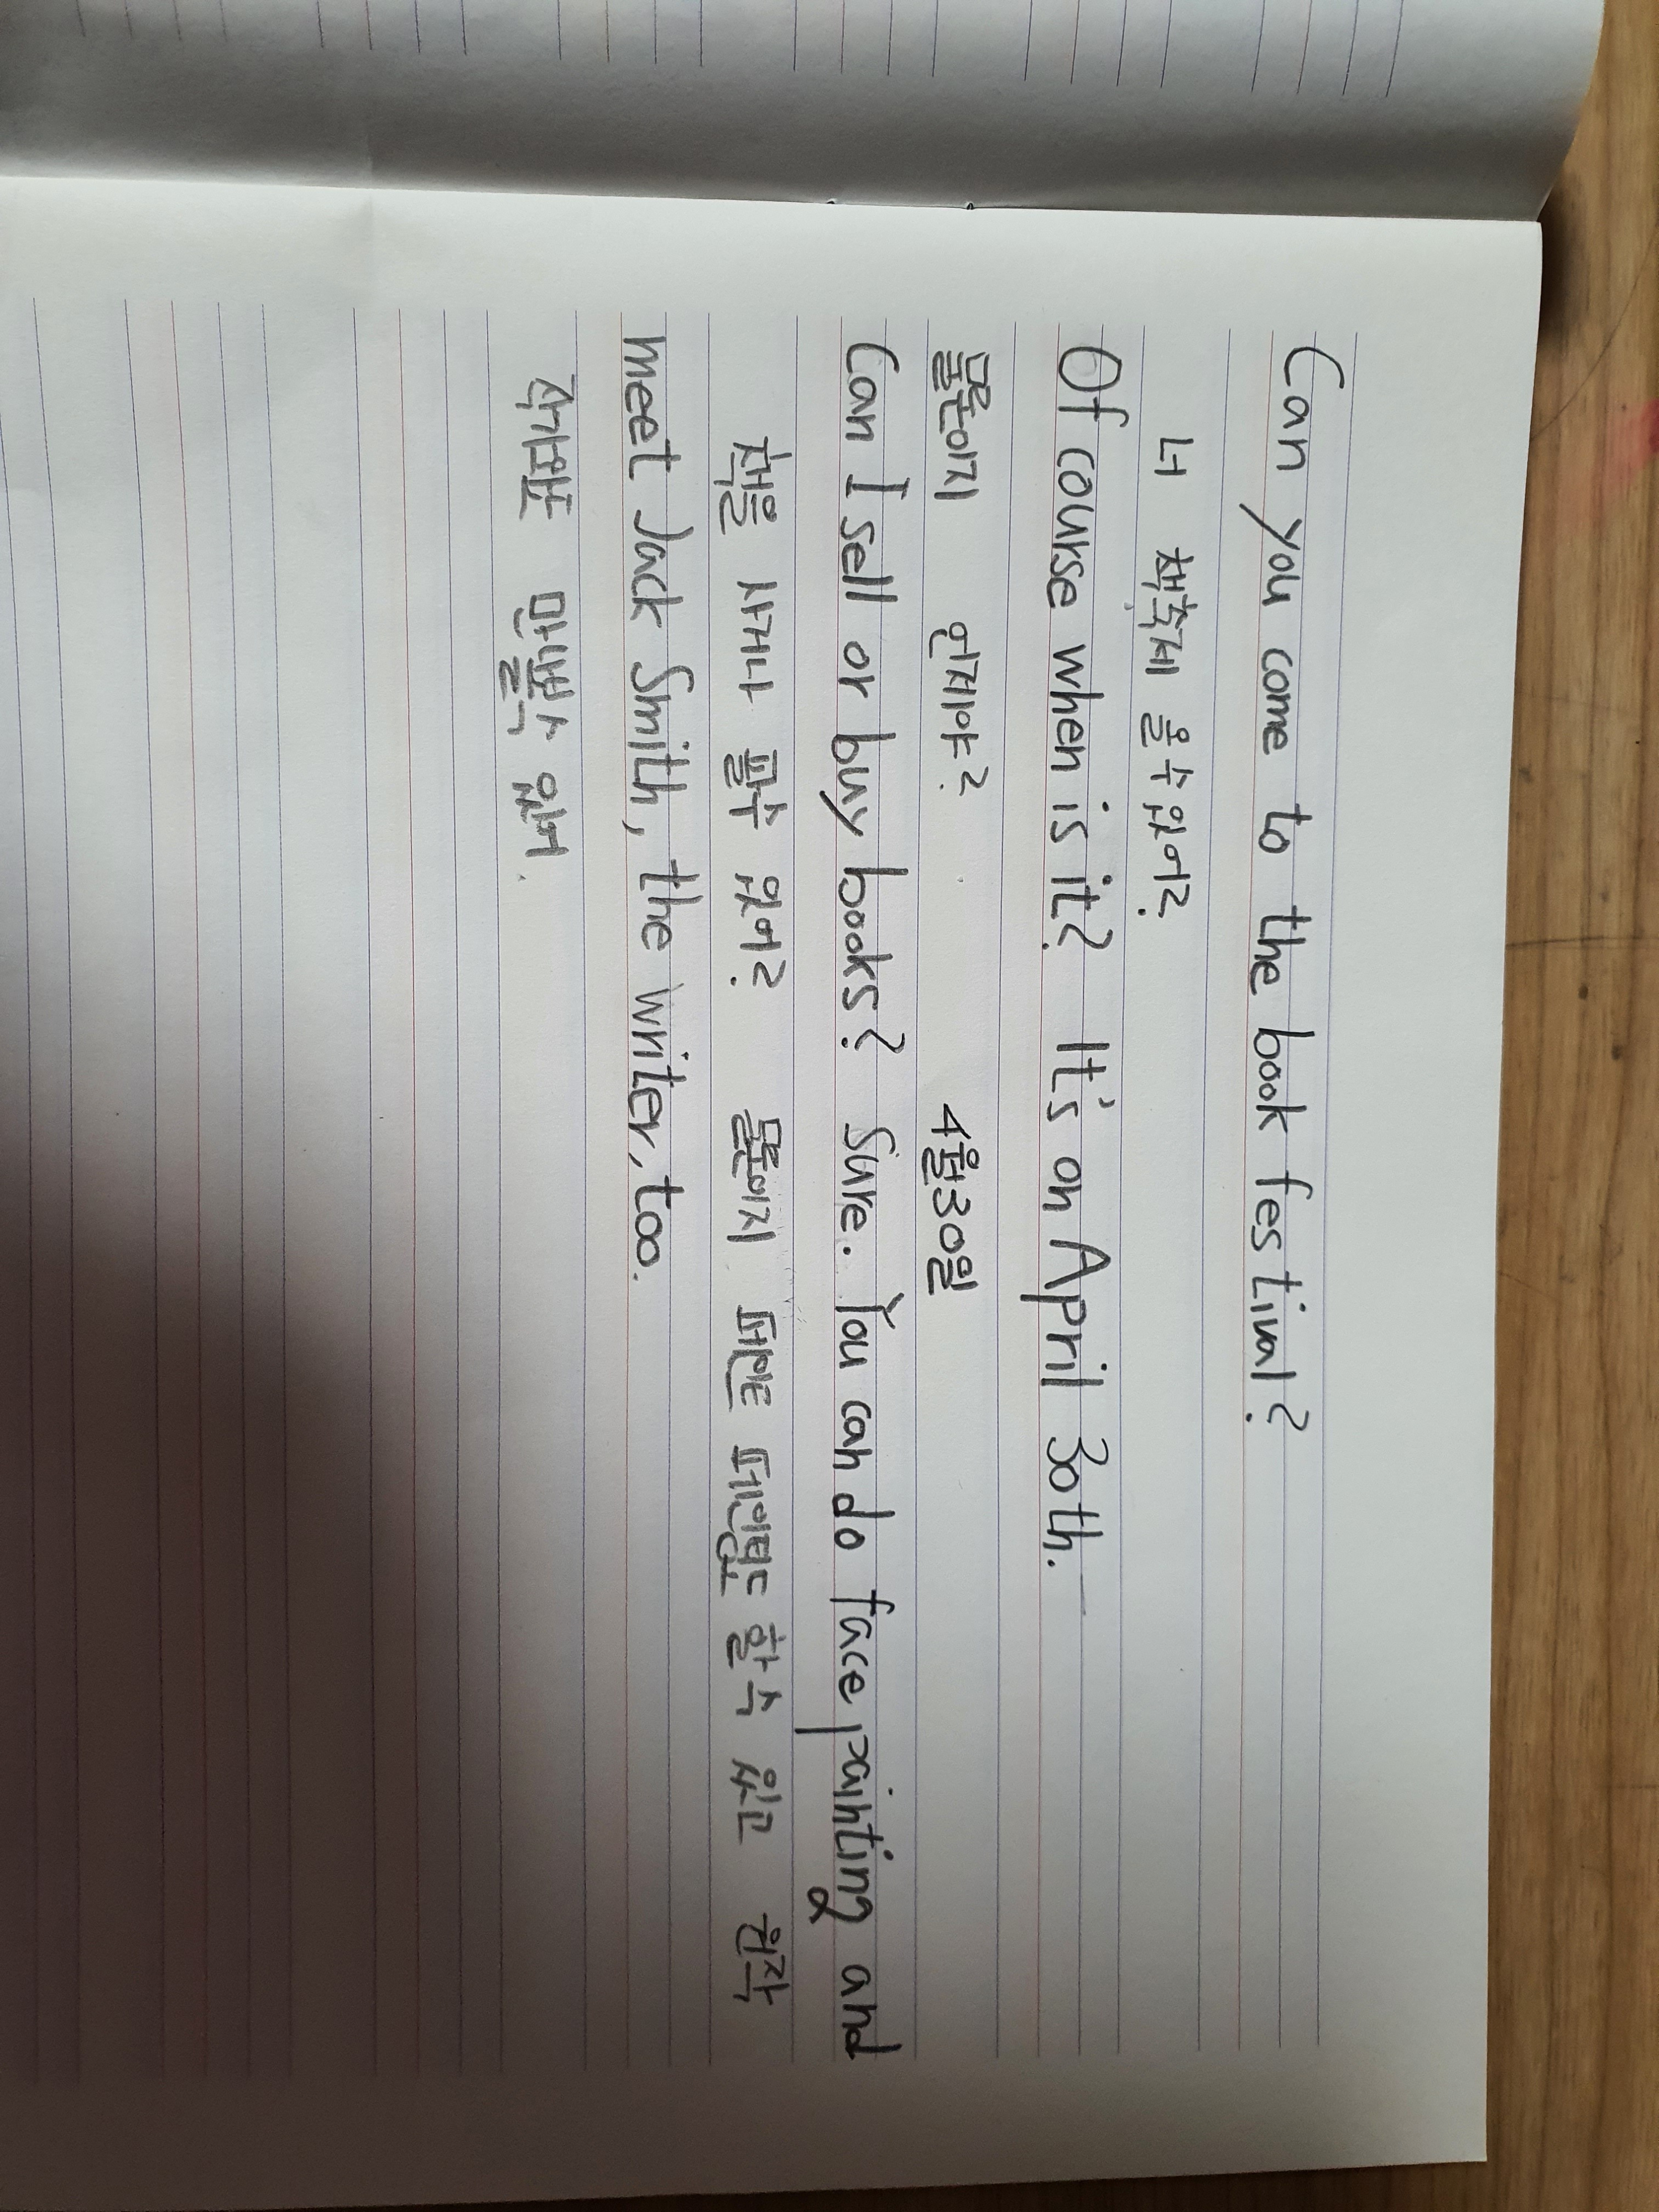 Can you come to the book festival?
너 책축제 올 수 있어?
Of course when is it? It's on April 30th.
물론이지 언제야? 4월30일
Can I sell or buy books? Sure. You can do face painting and
책을 사거나 팔수 있어? 물론이지 페인트 페인팅도 할 수 있고
meet Jack Smith, the writer, too.
작가 또한 만날 수 있어.